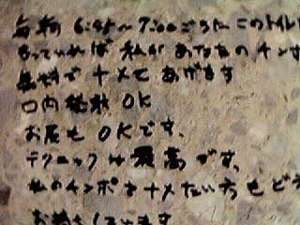 毎朝 6:45〜7:00ごろに このトイレに
立っていれば 私があなたのチンポ
無料でナメてあげます
口内発射 OK
お尻も OKです。
テクニックは最高です。
私のチンポをナメたい方もどう
お待ちしてます